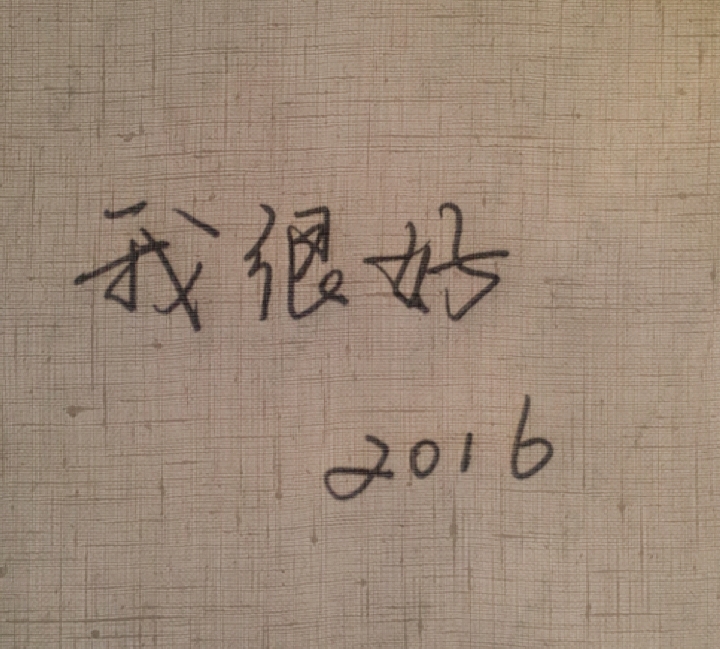 我很好
2016